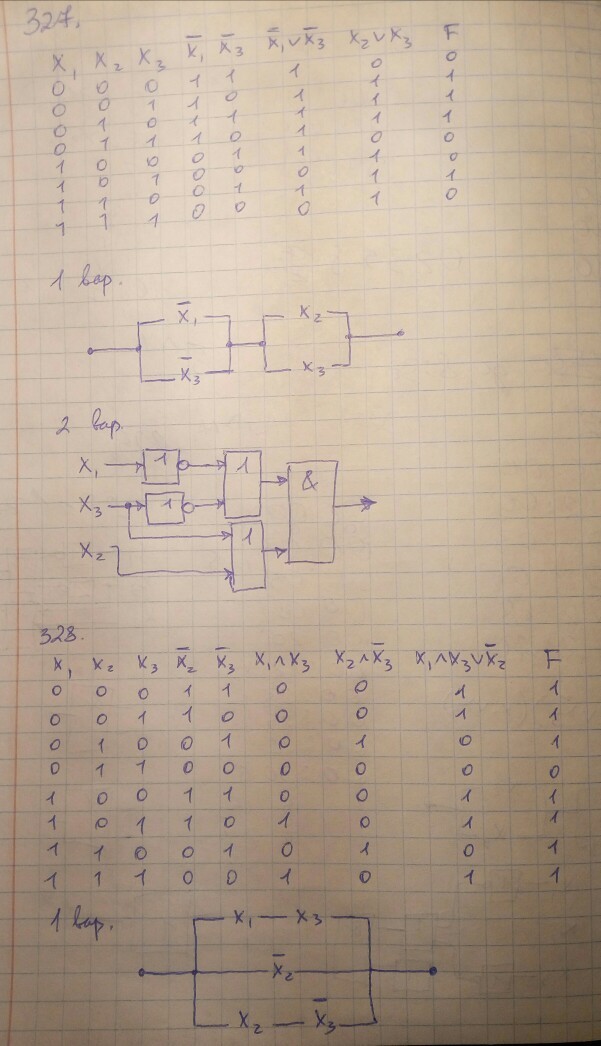 327.
X₁ X₂ X₃ X̄₁ X̄₃ X̄₁∨X̄₃ X₂∨X₃ F
0 0 0 1 1 1 0 0
0 0 1 1 0 1 1 1
0 1 0 1 1 1 1 1
0 1 1 1 0 1 1 1
1 0 0 0 1 1 0 0
1 0 1 0 0 0 1 0
1 1 0 0 1 1 1 1
1 1 1 0 0 0 1 0
1 вар.
X̄₁ X₂
X̄₃ X₃
2 вар.
X₁ 1 1 &
X₃ 1
1
X₂
328.
X₁ X₂ X₃ X̄₂ X̄₃ X₁∧X₃ X₂∧X̄₃ X₁∧X₃∨X̄₂ F
0 0 0 1 1 0 0 1 1
0 0 1 1 0 0 0 1 1
0 1 0 0 1 0 1 0 1
0 1 1 0 0 0 0 0 0
1 0 0 1 1 0 0 1 1
1 0 1 1 0 1 0 1 1
1 1 0 0 1 0 1 0 1
1 1 1 0 0 1 0 1 1
1 вар.
X₁ X₃
X̄₂
X₂ X̄₃